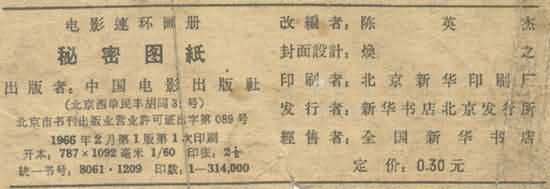 电影連环画册
秘密图紙
出版者：中国电影出版社
（北京西单民丰胡同31号）
北京市书刊出版业营业許可証出字第089号
1966年2月第1版第1次印刷
开本：787×1092毫米 1/60 印张：2½
統一书号：8061·1209 印数：1—314,000
改編者：陈英杰
封面設計：煥之
印刷者：北京新华印刷厂
发行者：新华书店北京发行所
經售者：全国新华书店
定价：0.30元